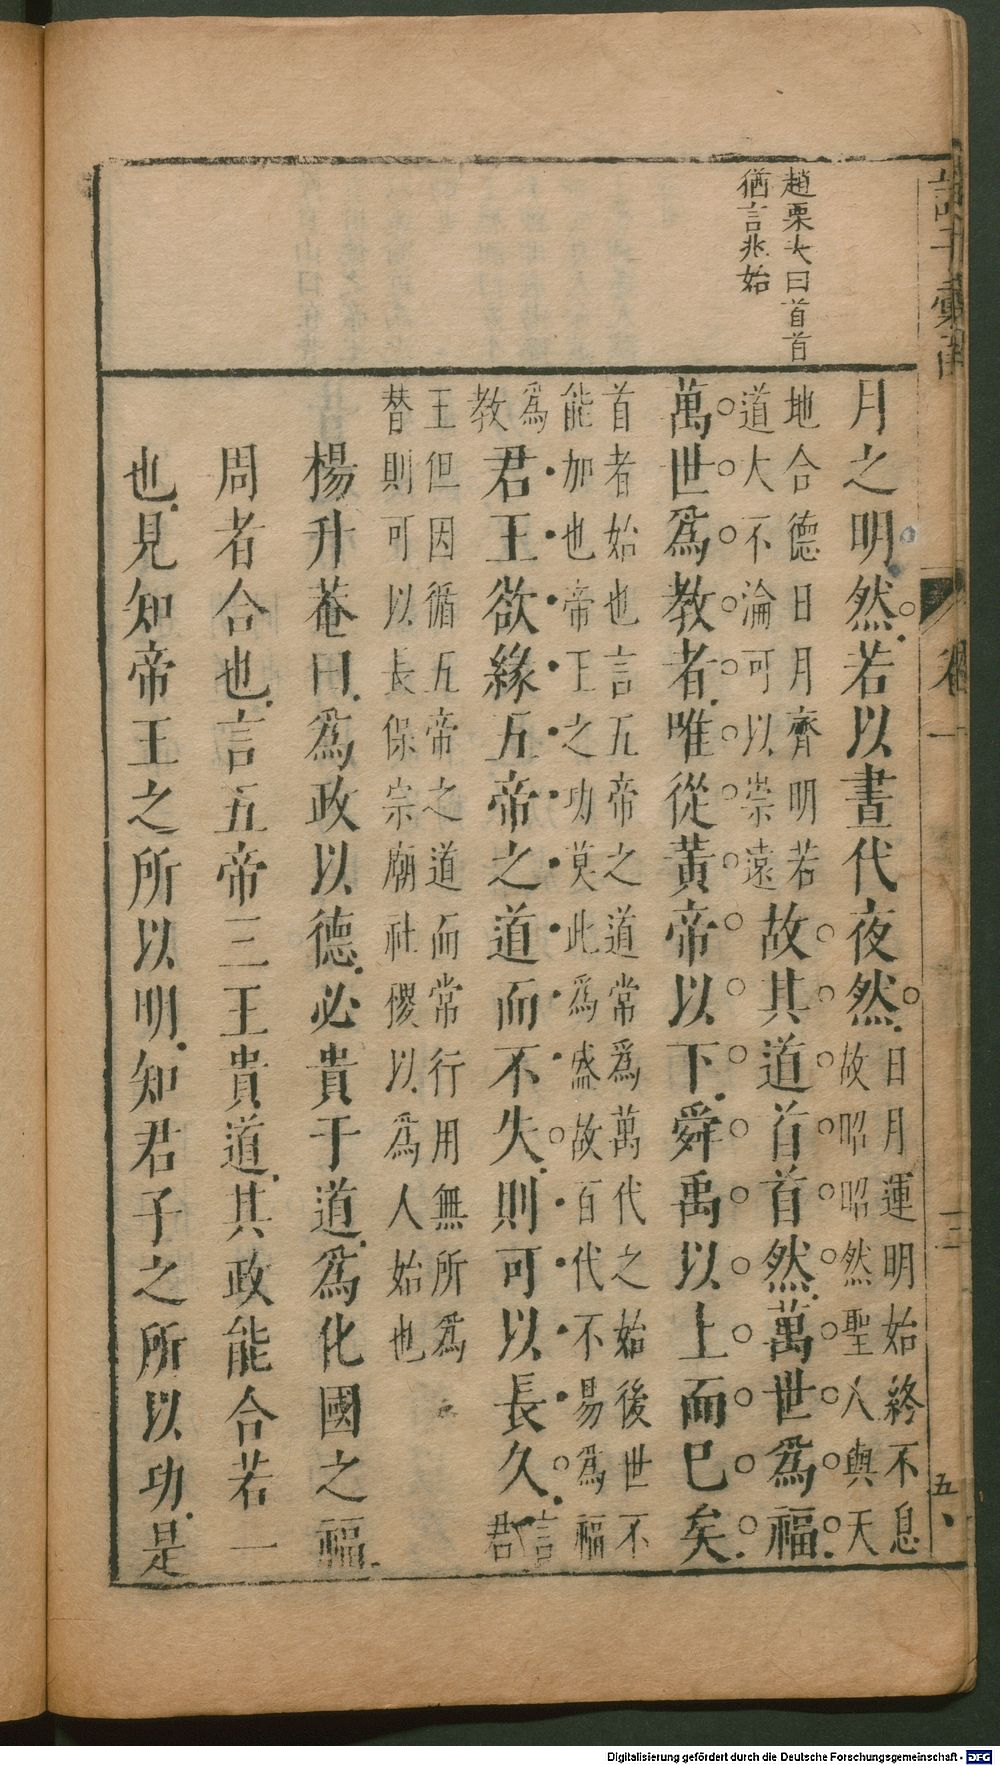 諸子彙函
卷一
五
趙栗夫曰首首
猶言兆始
月之明然若以晝代夜然
日月運明始終不息
故昭昭然聖人與天
地合德日月齊明若
道大不淪可以崇遠
故其道首首然萬世爲福
萬世爲教者唯從黃帝以下舜禹以上而巳矣
首者始也言五帝之道常爲萬代之始後世不
能加也帝王之功莫此爲盛故百代不易爲福
爲
教
君王欲緣五帝之道而不失則可以長久
言
君
王但因循五帝之道而常行用無所爲
替則可以長保宗廟社稷以爲人始也
楊升菴曰爲政以德必貴于道爲化國之福
周者合也言五帝三王貴道其政能合若一
也見知帝王之所以明知君子之所以功是
Digitalisierung gefördert durch die Deutsche Forschungsgemeinschaft - DFG